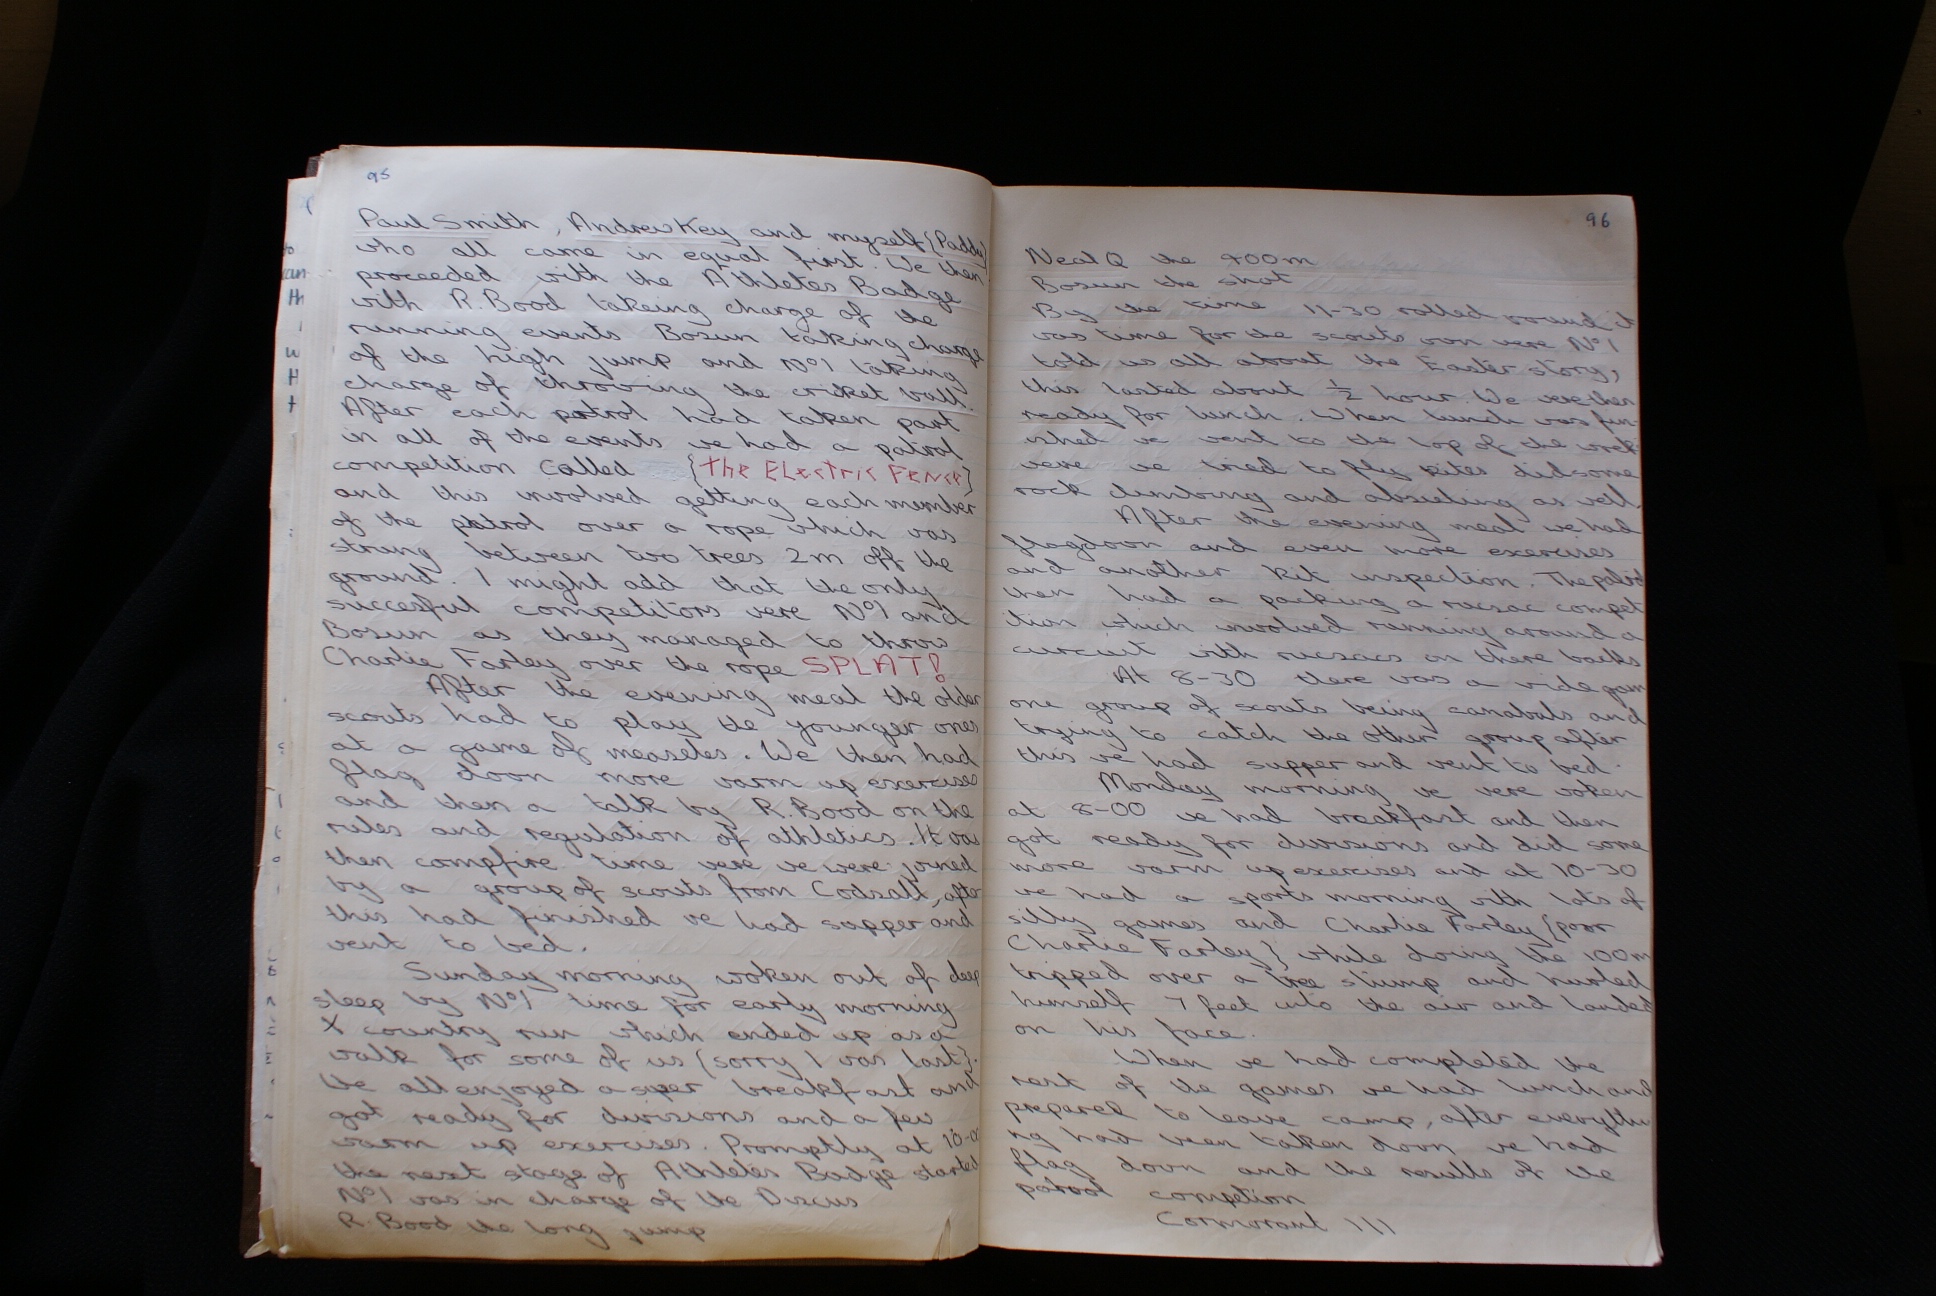 95
Paul Smith, Andrew Key and myself {Paddy}
who all came in equal first. We then
proceeded with the Athletes Badge
with R. Bood takeing charge of the
running events Bosun taking charge
of the high jump and No1 taking
charge of throwing the cricket ball.
After each patrol had taken part
in all of the events we had a patrol
competition called {the Electric Fence}
and this involved getting each member
of the patrol over a rope which was
strung between two trees 2m off the
ground. I might add that the only
succesful competitors were No1 and
Bosun as they managed to throw
Charlie Farley over the rope SPLAT!
After the evening meal the older
scouts had to play the younger ones
at a game of measles. We then had
flag down more warm up exercises
and then a talk by R. Bood on the
rules and regulation of athletics. It was
then campfire time were we were joined
by a group of scouts from Codsall, after
this had finished we had supper and
went to bed.
Sunday morning woken out of deep
sleep by No1 time for early morning
X country run which ended up as a
walk for some of us {sorry I was last}.
We all enjoyed a super breakfast and
got ready for divisions and a few
warm up exercises. Promptly at 10-00
the next stage of Athletes Badge started
No1 was in charge of the Discus
R. Bood the long jump
96
Neal Q the 400m
Bosun the shot
By the time 11-30 rolled round it
was time for the scouts own were No1
told us all about the Easter story,
this lasted about ½ hour. We were then
ready for lunch. When lunch was fin-
ished we went to the top of the wrek
were we tried to fly kites did some
rock climbing and abseiling as well.
After the evening meal we had
flagdown and even more exercises
and another kit inspection. The patrol
then had a packing a rucsac compet
ition which involved running around a
curcuit with rucsacs on there backs
At 8-30 there was a wide game
one group of scouts being canabals and
trying to catch the other group after
this we had supper and went to bed.
Monday morning we were woken
at 8-00 we had breakfast and then
got ready for divisions and did some
more warm up exercises and at 10-30
we had a sports morning with lots of
silly games and Charlie Farley {poor
Charlie Farley} while doing the 100m
tripped over a tree stump and hurled
himself 7 feet into the air and landed
on his face.
When we had completed the
rest of the games we had lunch and
prepared to leave camp, after everythi
ng had been taken down we had
flag down and the results of the
patrol competion
Cormorant 111